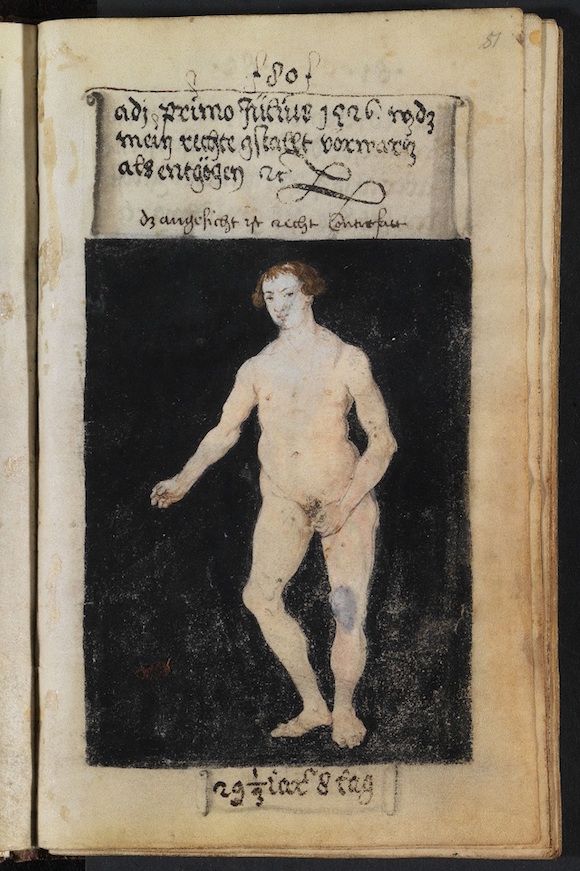 51
80
adj. primo Jülius 1526. dz
mein rechte gstallt vorwartz
als entgögen ꝛc
dz angesicht ist recht Contrefatt
29 1/3 iar 8 tag